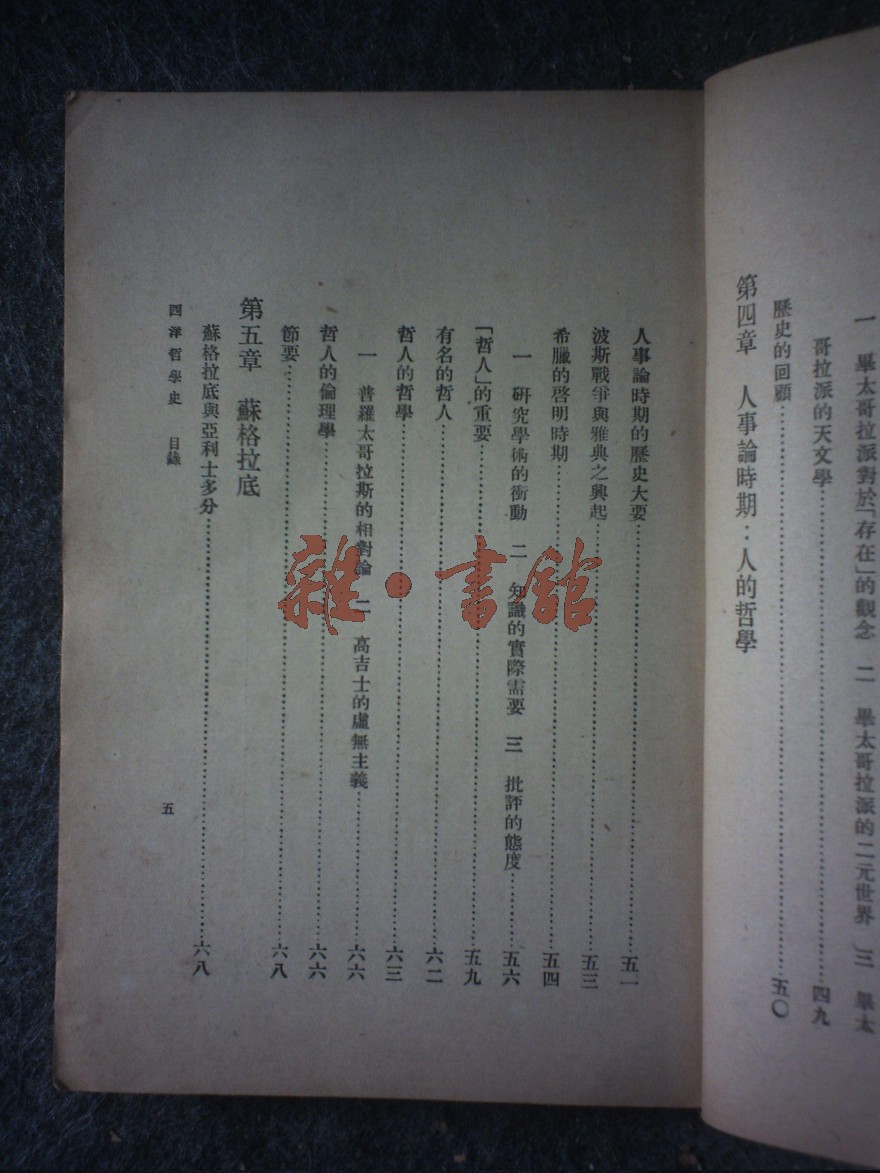 一　畢太哥拉派對於「存在」的觀念　二　畢太哥拉派的二元世界　三　畢太
哥拉派的天文學……四九
第四章　人事論時期：人的哲學
歷史的回顧……五〇
人事論時期的歷史大要……五一
波斯戰爭與雅典之興起……五三
希臘的啓明時期……五四
一　研究學術的衝動　二　知識的實際需要　三　批評的態度……五六
「哲人」的重要……五九
有名的哲人……六二
哲人的哲學……六三
一　普羅太哥拉斯的相對論　二　高吉士的虛無主義……六六
哲人的倫理學……六六
節要……六八
第五章　蘇格拉底
蘇格拉底與亞利士多分……六八
西洋哲學史　目錄
五
雜·書館